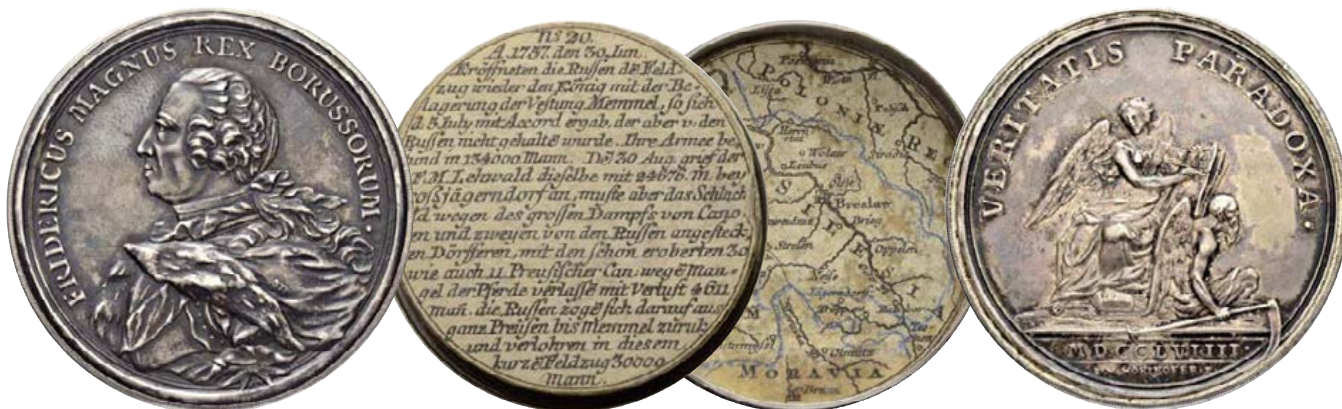 FRIDERICUS MAGNUS REX BORUSSORUM.
No 20.
A. 1757. den 30. Jun.
Eröffneten die Russen dē Feld-
zug wieder den König mit der Be-
lagerung der Vestung Memmel, so sich
d. 5 July mit Accord ergab, der aber v. den
Russen nicht gehaltē wurde. Ihre Armee be
ſtund in 134000 Mann. Dē 30 Aug. grief der
F.M. Lehwald dieselbe mit 24676. m. bey
Großjägerndorf an, muste aber das Schlach
wegen des grossen Dampfs von Cano
en und zweyen von den Russen angesteck
en Dörfferen, mit den schon eroberten 30
wie auch 11 Preusischer Can: wegē Man-
gel der Pferde verlassē mit Verlust 4611
mañ. die Russen zogē sich darauf aus
ganz Preüsen bis Memmel zürük
und verlohren in diesem
kurzē Feldzug 30000
Mann.
POLONIÆ
Lissa
Wolaw
Leubus
Breslaw
Brieg
Oppelen
Strelen
Olmütz
MORAVIA
Brunn
VERITATIS PARADOXA.